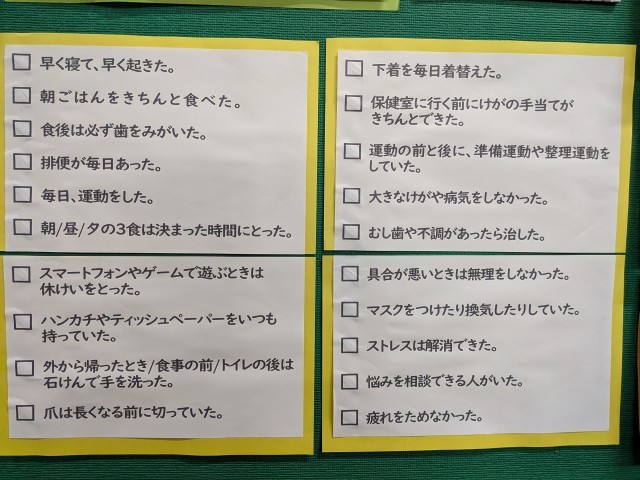 □ 早く寝て、早く起きた。
□ 朝ごはんをきちんと食べた。
□ 食後は必ず歯をみがいた。
□ 排便が毎日あった。
□ 毎日、運動をした。
□ 朝/昼/夕の3食は決まった時間にとった。
□ スマートフォンやゲームで遊ぶときは
休けいをとった。
□ ハンカチやティッシュペーパーをいつも
持っていた。
□ 外から帰ったとき/食事の前/トイレの後は
石けんで手を洗った。
□ 爪は長くなる前に切っていた。
□ 下着を毎日着替えた。
□ 保健室に行く前にけがの手当てが
きちんとできた。
□ 運動の前と後に、準備運動や整理運動を
していた。
□ 大きなけがや病気をしなかった。
□ むし歯や不調があったら治した。
□ 具合が悪いときは無理をしなかった。
□ マスクをつけたり換気したりしていた。
□ ストレスは解消できた。
□ 悩みを相談できる人がいた。
□ 疲れをためなかった。